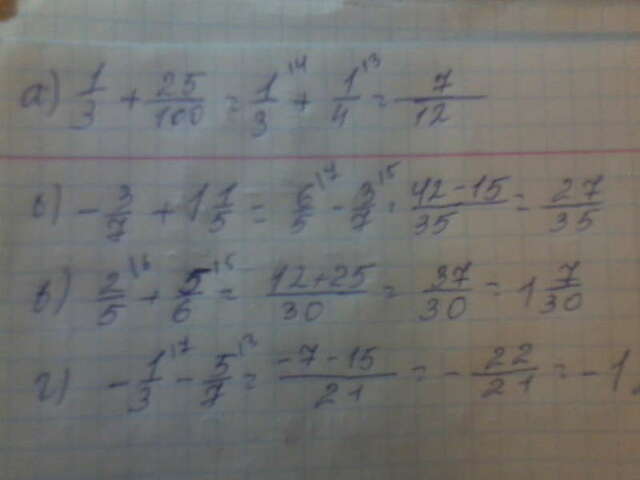 а) 1/3 + 25/100 = 1/3 ^14 + 1/4 ^13 = 7/12
б) - 3/7 + 1 1/5 = 6/5 ^17 - 3/7 ^15 = 42-15/35 = 27/35
в) 2/5 ^16 + 5/6 ^15 = 12+25/30 = 37/30 = 1 7/30
г) - 1/3 ^17 - 5/7 ^13 = -7-15/21 = - 22/21 = -1